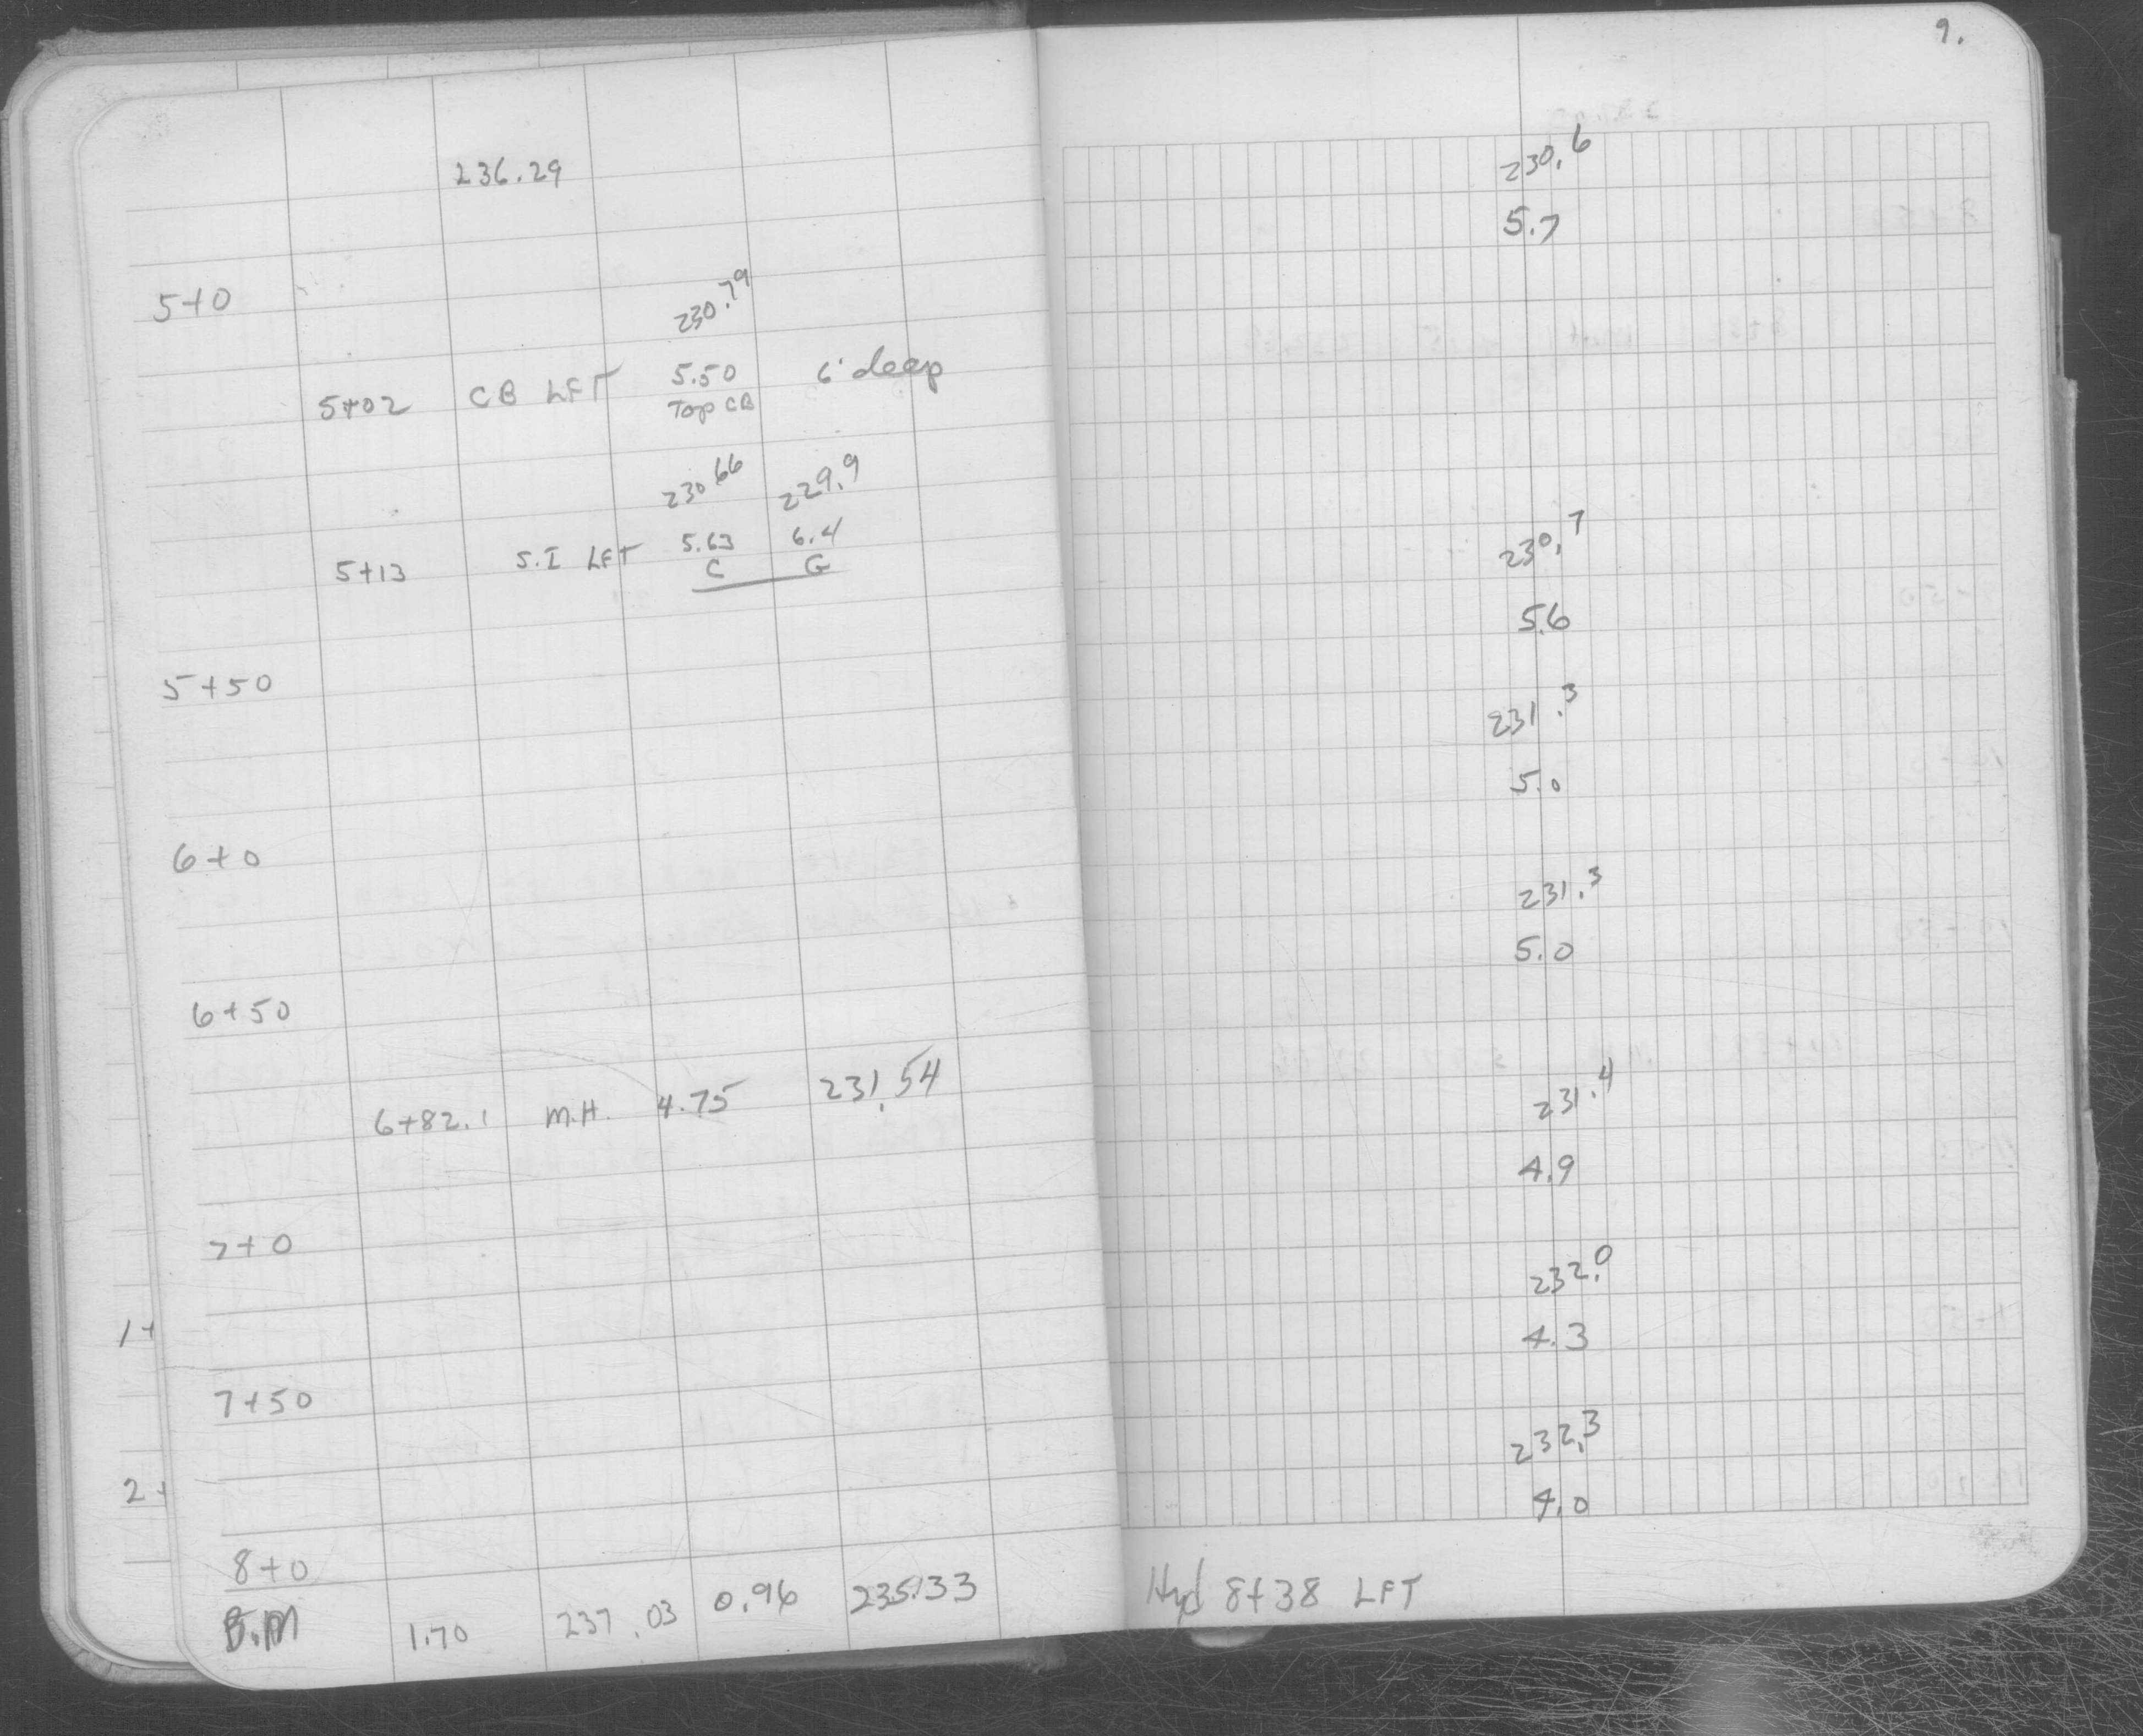 236.29
5+0
230.79
5+02 CB LFT 5.50 6' deep
Top CB
230.66 229.9
5+13 S.I LFT 5.63 6.4
C G
5+50
6+0
6+50
6+82.1 M.H. 4.75 231.54
7+0
7+50
8+0
B.M 1.70 237.03 0.96 235.33
1+
2+
9.
230.6
5.7
230.7
5.6
231.3
5.0
231.3
5.0
231.4
4.9
232.0
4.3
232.3
4.0
Hyd 8+38 LFT